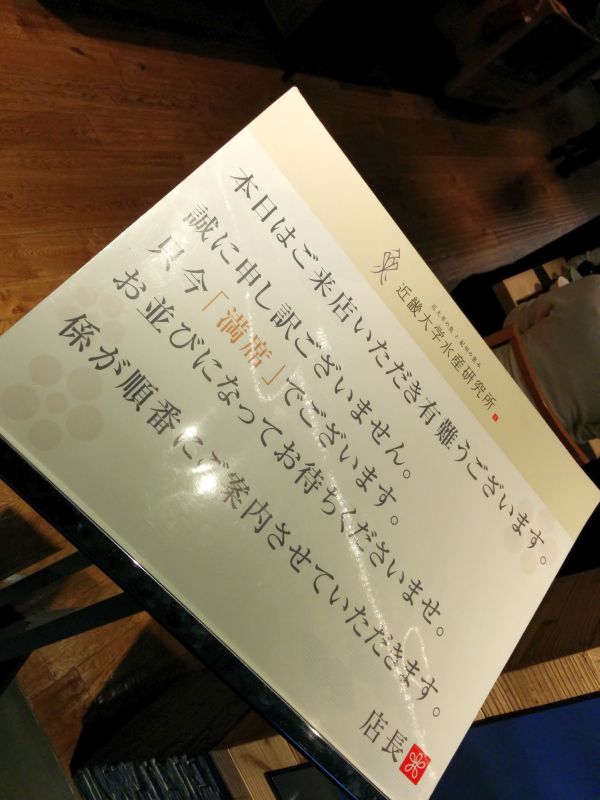 近大発の魚と紀州の恵み
近畿大学水産研究所
本日はご来店いただき有難うございます。
誠に申し訳ございません。
只今「満席」でございます。
お並びになってお待ちくださいませ。
係が順番にご案内させていただきます。
店長